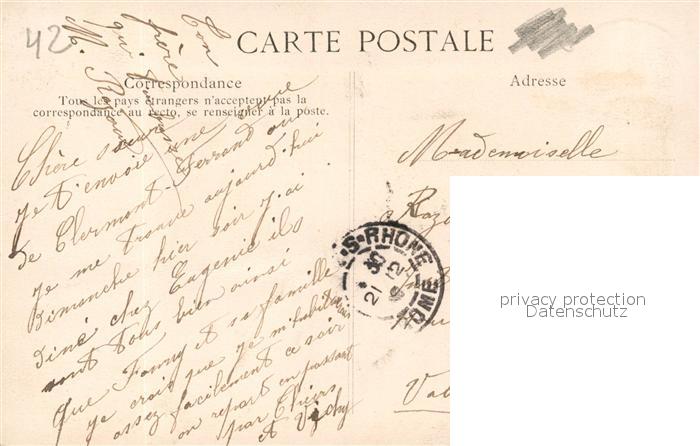 42
CARTE POSTALE
Correspondance
Tous les pays étrangers n'acceptent pas la
correspondance au recto, se renseigner à la poste.
Adresse
Chère sœur
Je t'envoie une vue
de Clermont-Ferrand ou
je me trouve aujourd'hui
Dimanche hier soir j'ai
diné chez Eugenie ils
sont tous bien ainsi
que Fanny et sa famille
je crois que je m'habituerais
assez facilement ce soir
on repart en passant
par Thiers
A Vichy
Ton
frère
qui
M.
Mademoiselle
Val
S-RHONE
21
12
OME
privacy protection
Datenschutz